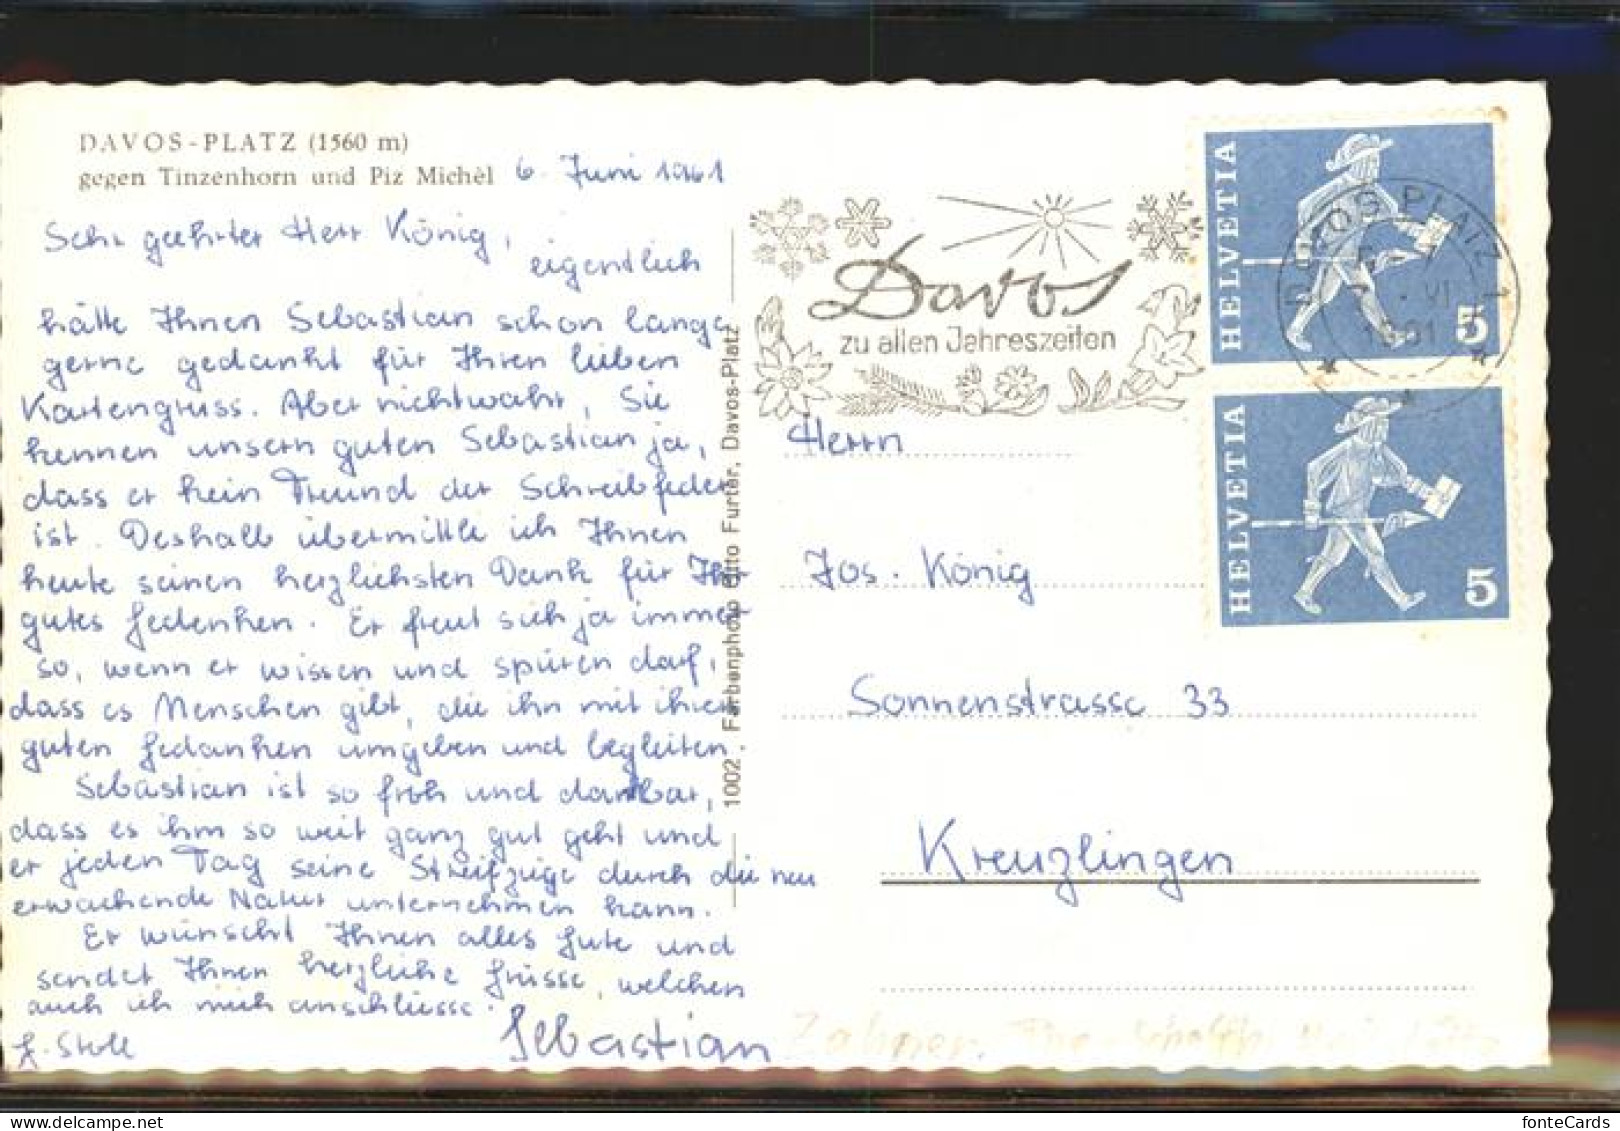 DAVOS-PLATZ (1560 m)
gegen Tinzenhorn und Piz Michèl
6. Juni 1961
Sehr geehrter Herr König,
eigentlich
hätte Ihnen Sebastian schon lange
gerne gedankt für Ihren lieben
Kartengruss. Aber nichtwahr, Sie
kennen unsern guten Sebastian ja,
dass er kein Freund der Schreibfeder
ist. Deshalb übermittle ich Ihnen
heute seinen herzlichsten Dank für Ihr
gutes Gedenken. Er freut sich ja immer
so, wenn er wissen und spüren darf,
dass es Menschen gibt, die ihn mit ihren
guten Gedanken umgeben und begleiten.
Sebastian ist so froh und dankbar,
dass es ihm so weit ganz gut geht und
er jeden Tag seine Streifzüge durch die neu
erwachende Natur unternehmen kann.
Er wünscht Ihnen alles Gute und
sendet Ihnen herzliche Grüsse, welchen
auch ich mich anschliesse.
Sebastian
1002. Farbenphoto Otto Furter, Davos-Platz
Davos
zu allen Jahreszeiten
HELVETIA
5
DAVOS PLATZ 1
VI
1961
HELVETIA
5
Herrn
Jos. König
Sonnenstrasse 33
Kreuzlingen
Zahner,
fonteCards